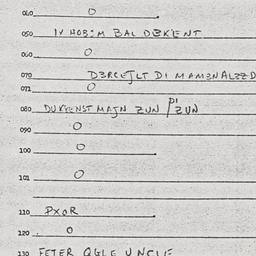 040 O
050 IX HOB:M BAL DERKENT
060 O
070 DERCEJLT DI
071 O
080 DU KENST MAJN ZUN / ZUN
090 O
100 O
101 O
110 PXOR
120 O
130 FETER UNCLE